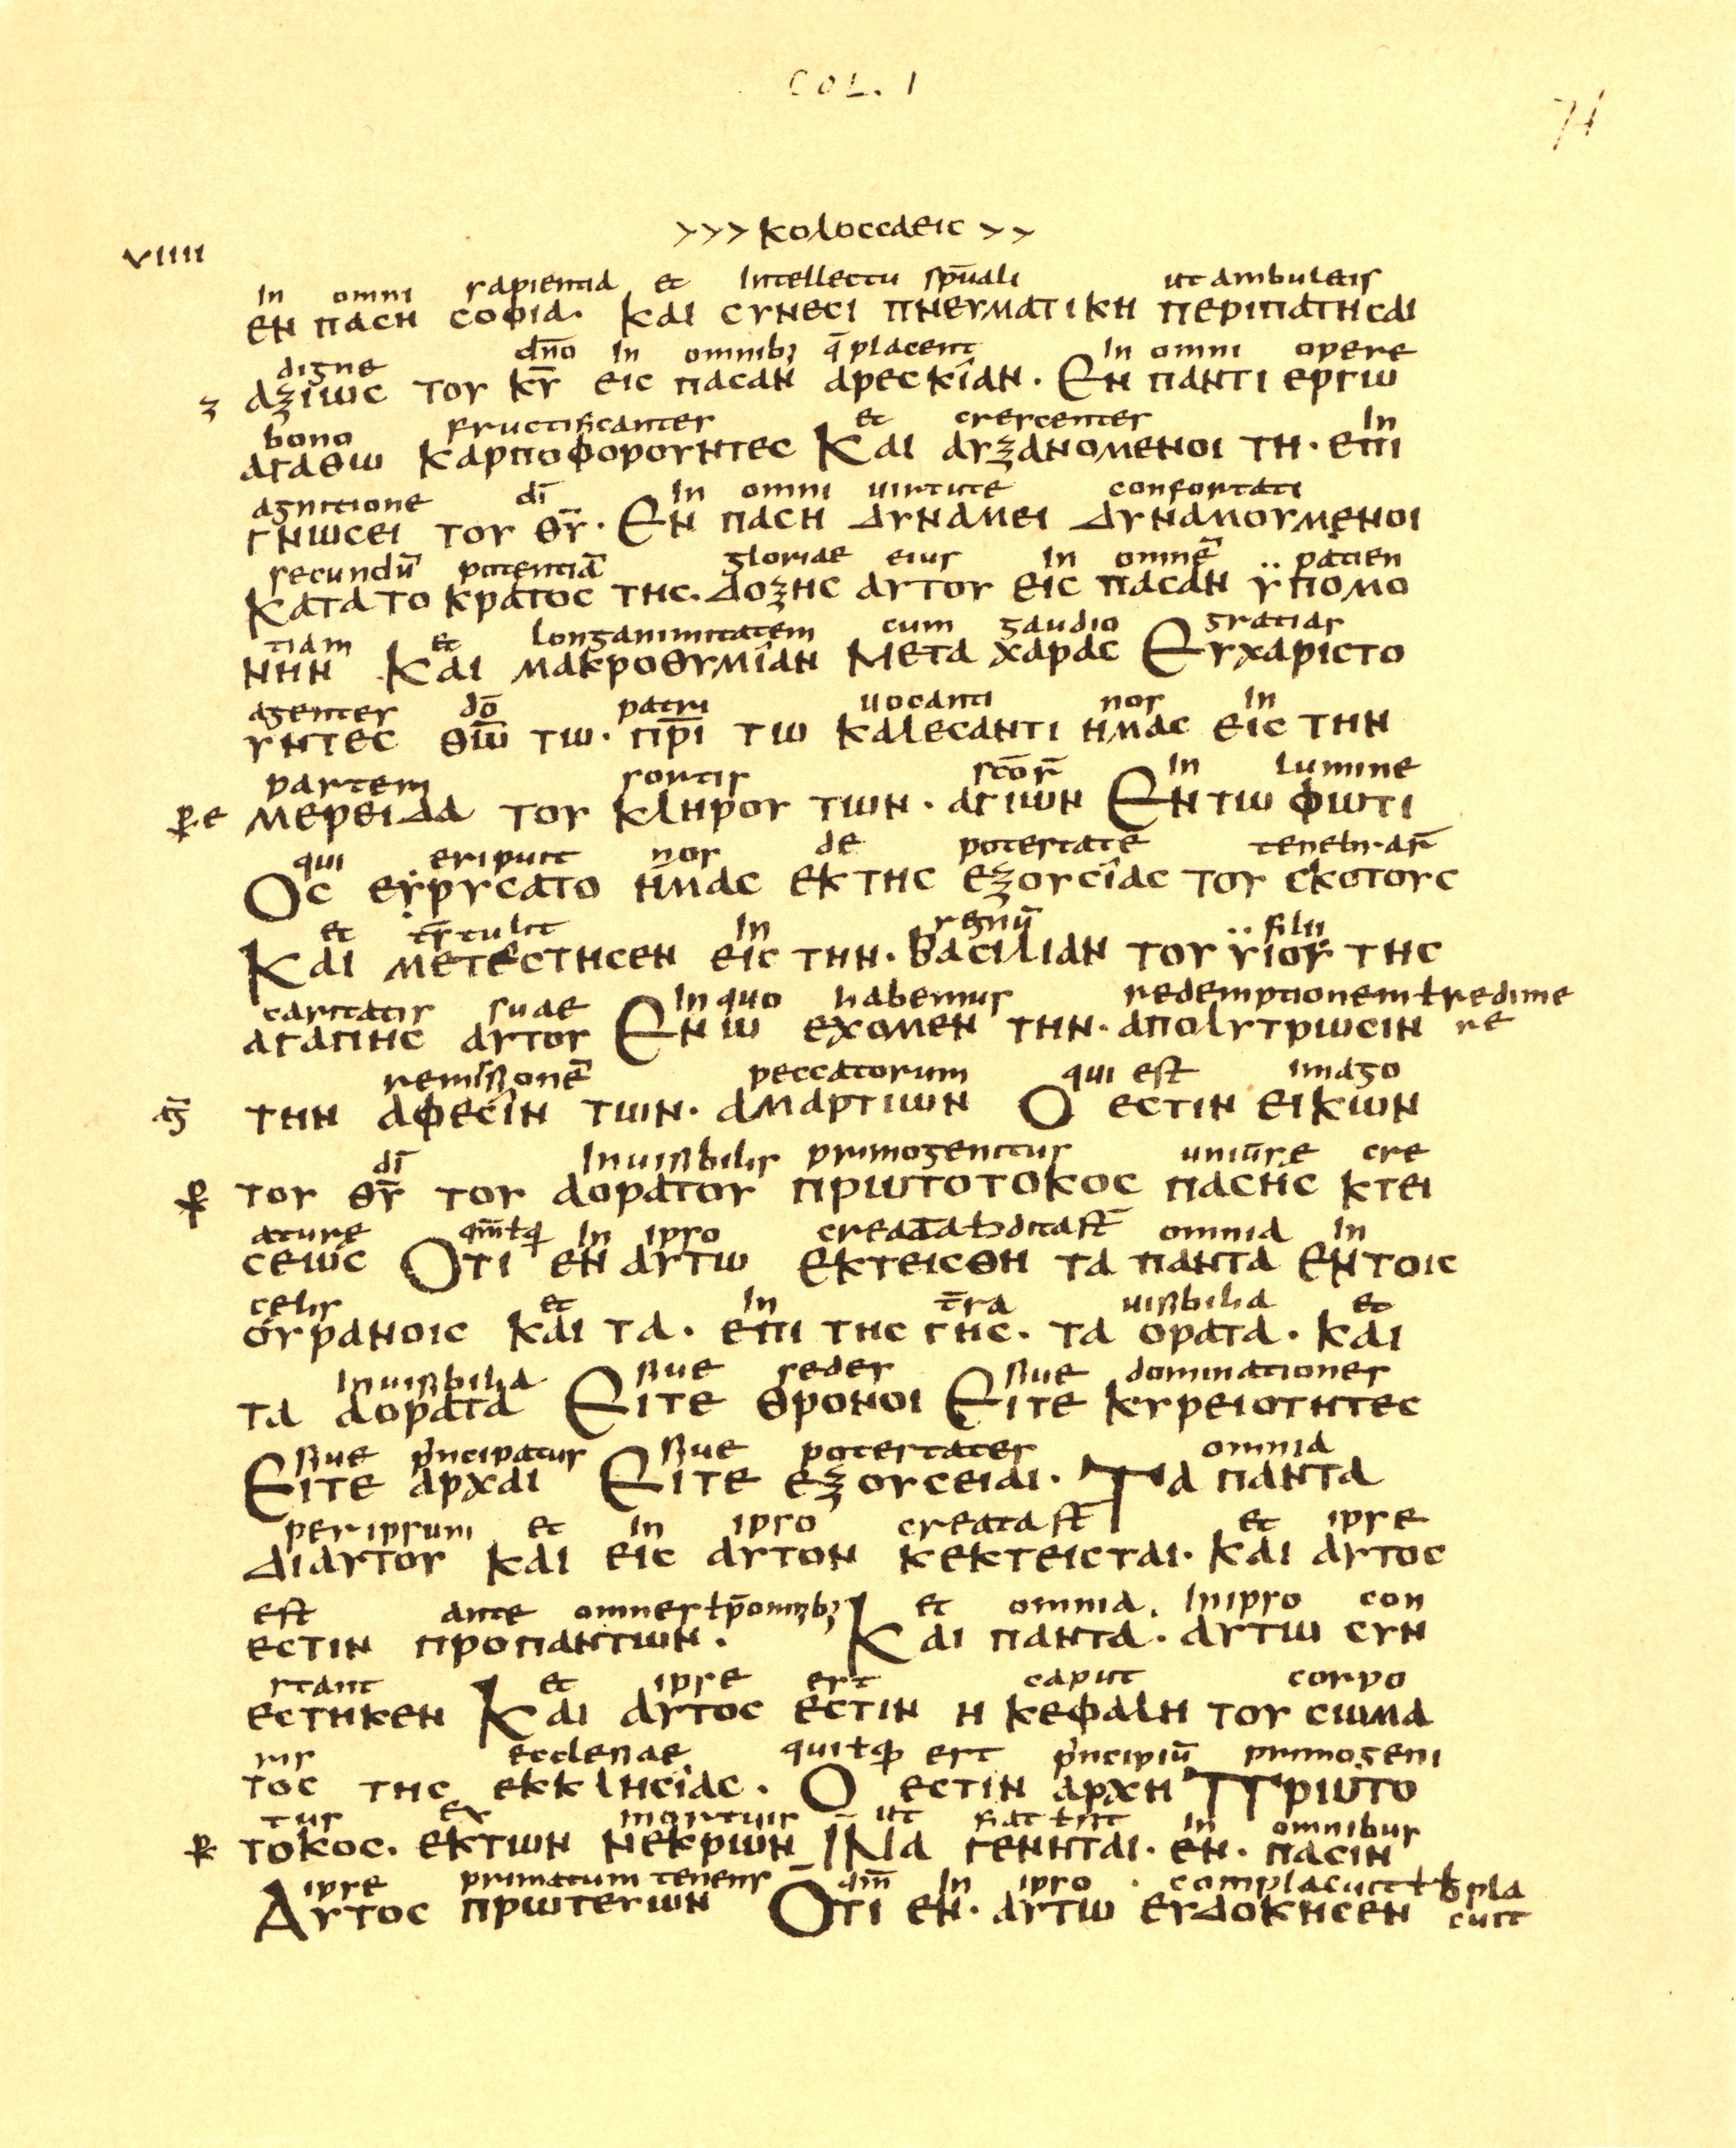 COL. 1
74
>>> κολοссαεις >>
VIIII
In omni sapientia et Intellectu sp̄uali ut ambuletis
εν παςη ςοφια. Και ςυνεςι πνευματικη περιπατηςαι
digne dn̄o In omnibꝫ q̄ placent In omni opere
αξιως του κ̄υ εις παςαν αρεςκιαν. Εν παντι εργω
bono fructificantes et crescentes In
αγαθω καρποφορουντες Και αυξανομενοι τη. επι
agnitione dī In omni uirtute confortati
γνωςει του θ̄υ. Εν παςη δυναμει δυναμουμενοι
secundū potentiā gloriae eius In omnē patien
κατα το κρατος της. δοξης αυτου εις παςαν υπομο
tiam et longanimitatem cum gaudio gratias
νην Και μακροθυμιαν Μετα χαρας Ευχαριςτο
agentes dō patri uocanti nos In
υντες θ̄ω τω. π̄ρι τω καλεςαντι ημας εις την
partem sortis sc̄or̄ In lumine
μερειδα του κληρου των. αγιων Εν τω φωτι
qui eripuit nos de potestate tenebrar̄
Ος ευρυςατο ημας εκ της εξουςιας του ςκοτους
et tr̄tulit In regnū filii
Και μετεςτηςεν εις την. βαςιλιαν του υιου της
caritatis suae In quo habemus redemptionem ɫ redime
αγαπης αυτου Εν ω εχομεν την. απολυτρωςιν re
remissionē peccatorum qui est imago
την αφεςιν των. αμαρτιων Ο εςτιν εικων
dī Inuisibilis primogenitus uniūse cre
του θ̄υ του αορατου πρωτοτοκος παςης κτει
ature qm̄ ɫ q In ipso omnia In
ςεως Οτι εν αυτω εκτειςθη τα παντα εν τοις
celis et In t̄ra uisibilia et
ουρανοις και τα. επι της γης. τα ορατα. και
Inuisibilia siue sedes siue dominationes
τα αορατα Ειτε θρονοι Ειτε κυρειοτητες
siue p̓ncipatus siue potestates omnia
Ειτε αρχαι Ειτε εξουςειαι. Τα παντα
per ipsum et in ipso creata st̄ et ipse
διαυτου και εις αυτον κεκτειςται. και αυτος
est ante omnes ɫ p̄ omnibꝫ et omnia. In ipso con
εςτιν προπαντων. Και παντα. αυτω ςυν
stant et ipse est caput corpo
εςτηκεν Και αυτος εςτιν η κεφαλη του ςωμα
ris ecclesiae qui ɫ q est p̓ncipiū primogeni
τος της εκκληςιας. Ο εςτιν αρχη Πρωτο
tus ex mortuis ut fiat ɫ sit In omnibus
τοκος. εκτων νεκρων ΙΝα γενηται. εν. παςιν
ipse primatum tenens qm̄ In ipso complacuit ɫ bpla
Αυτος πρωτευων Οτι εν. αυτω ευδοκηςεν cuit